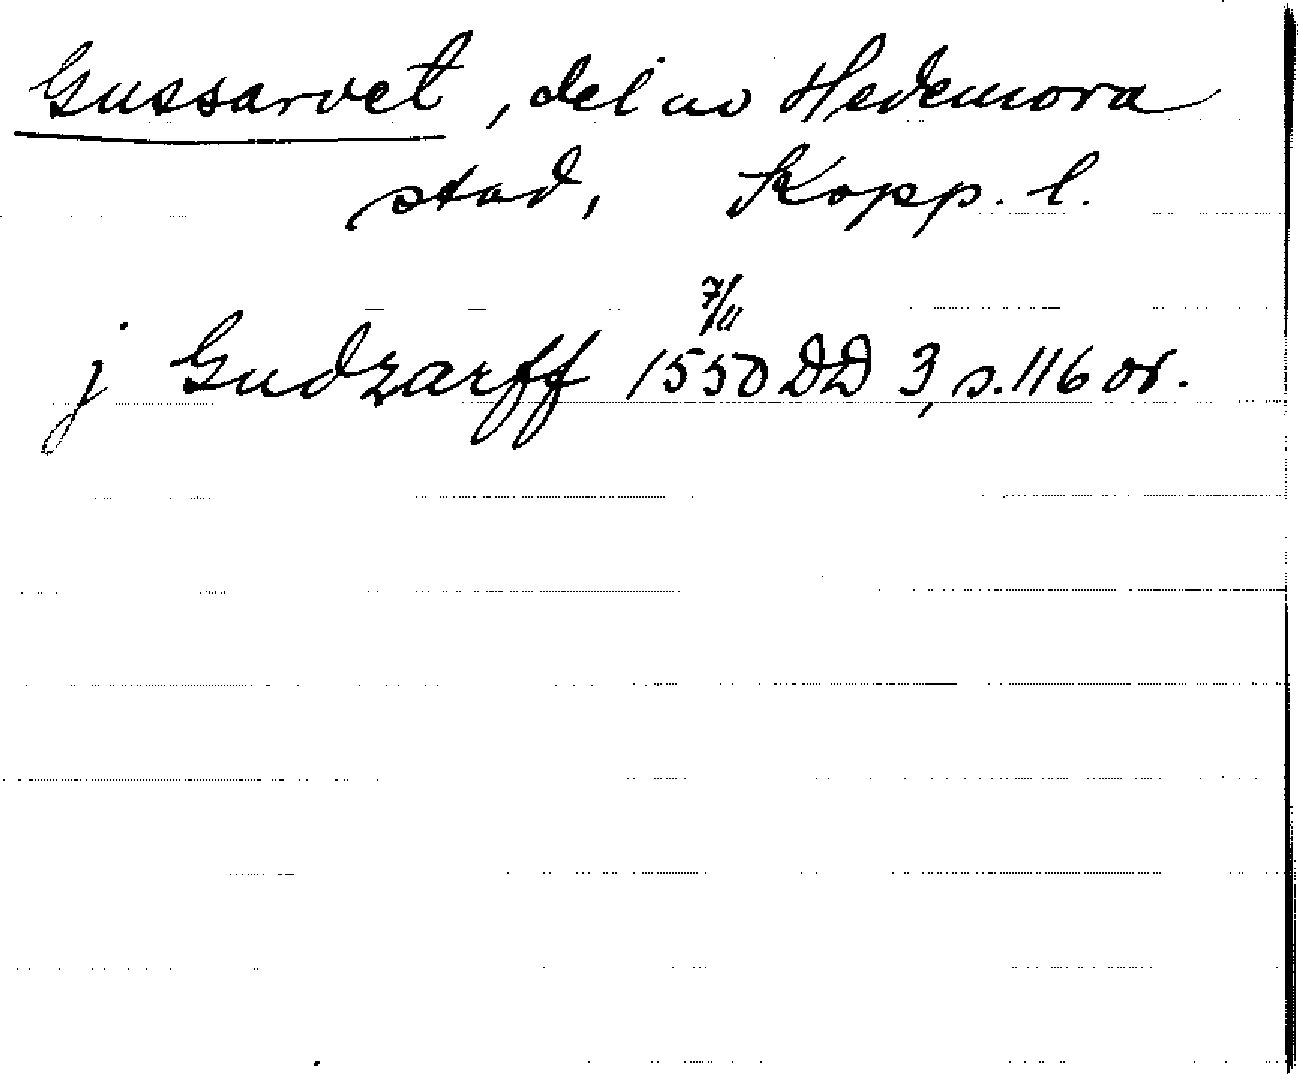 Gussarvet, del av Hedemora
stad, Kopp. l.
j Gudzarff 7/11 1550 DD 3, s. 116 or.